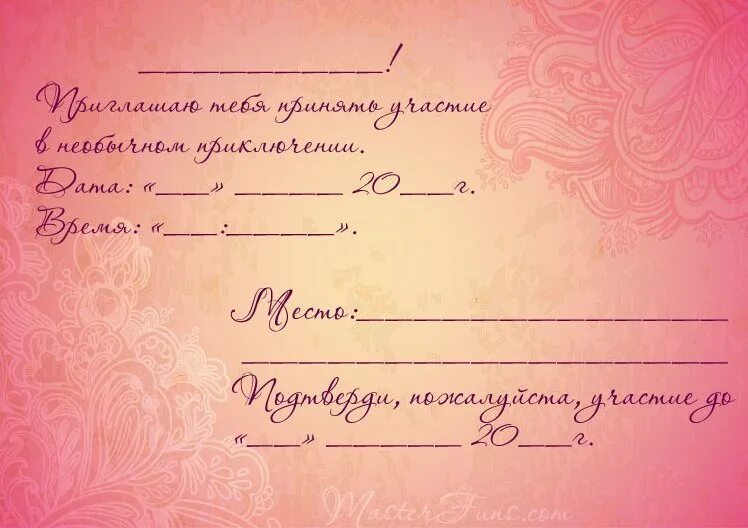 ____________!
Приглашаю тебя принять участие
в необычном приключении.
Дата: «___» ______ 20___г.
Время: «___:______».
Место:____________________
__________________________
Подтверди, пожалуйста, участие до
«___» _______ 20___г.
MasterFuns.com